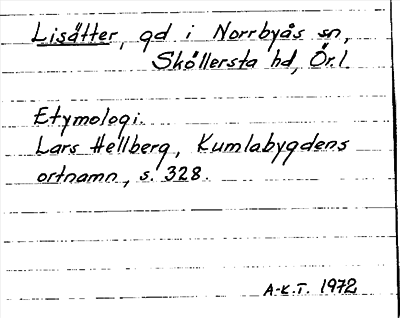 Lisätter, gd i Norrbyås sn,
Sköllersta hd, Ör.l.
Etymologi.
Lars Hellberg, Kumlabygdens
ortnamn, s. 328.
A-K.T. 1972